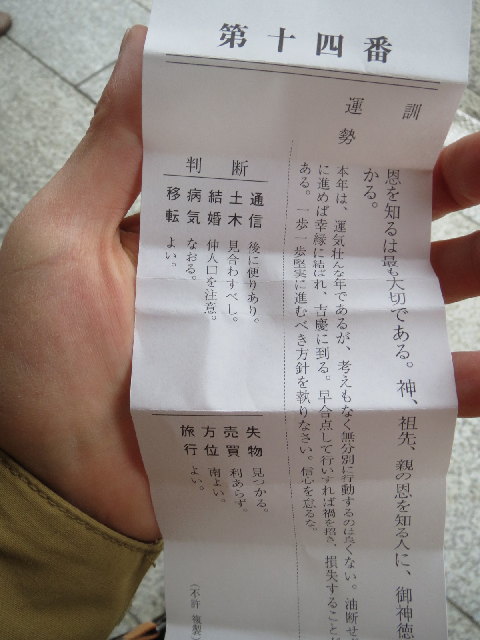 第十四番
訓
恩を知るは最も大切である。神、祖先、親の恩を知る人に、御神徳
かる。
運勢
本年は、運気壮んな年であるが、考えもなく無分別に行動するのは良くない。油断せ
に進めば幸縁に結ばれ、吉慶に到る。早合点して行いすれば禍を招き、損失すること
ある。一歩一歩堅実に進むべき方針を執りなさい。信心を忘るな。
判断
通信 後に便りあり。
土木 見合わすべし。
結婚 仲人口を注意。
病気 なおる。
移転 よい。
失物 見つかる。
売買 利あらず。
方位 南よい。
旅行 よい。
(不許 複製